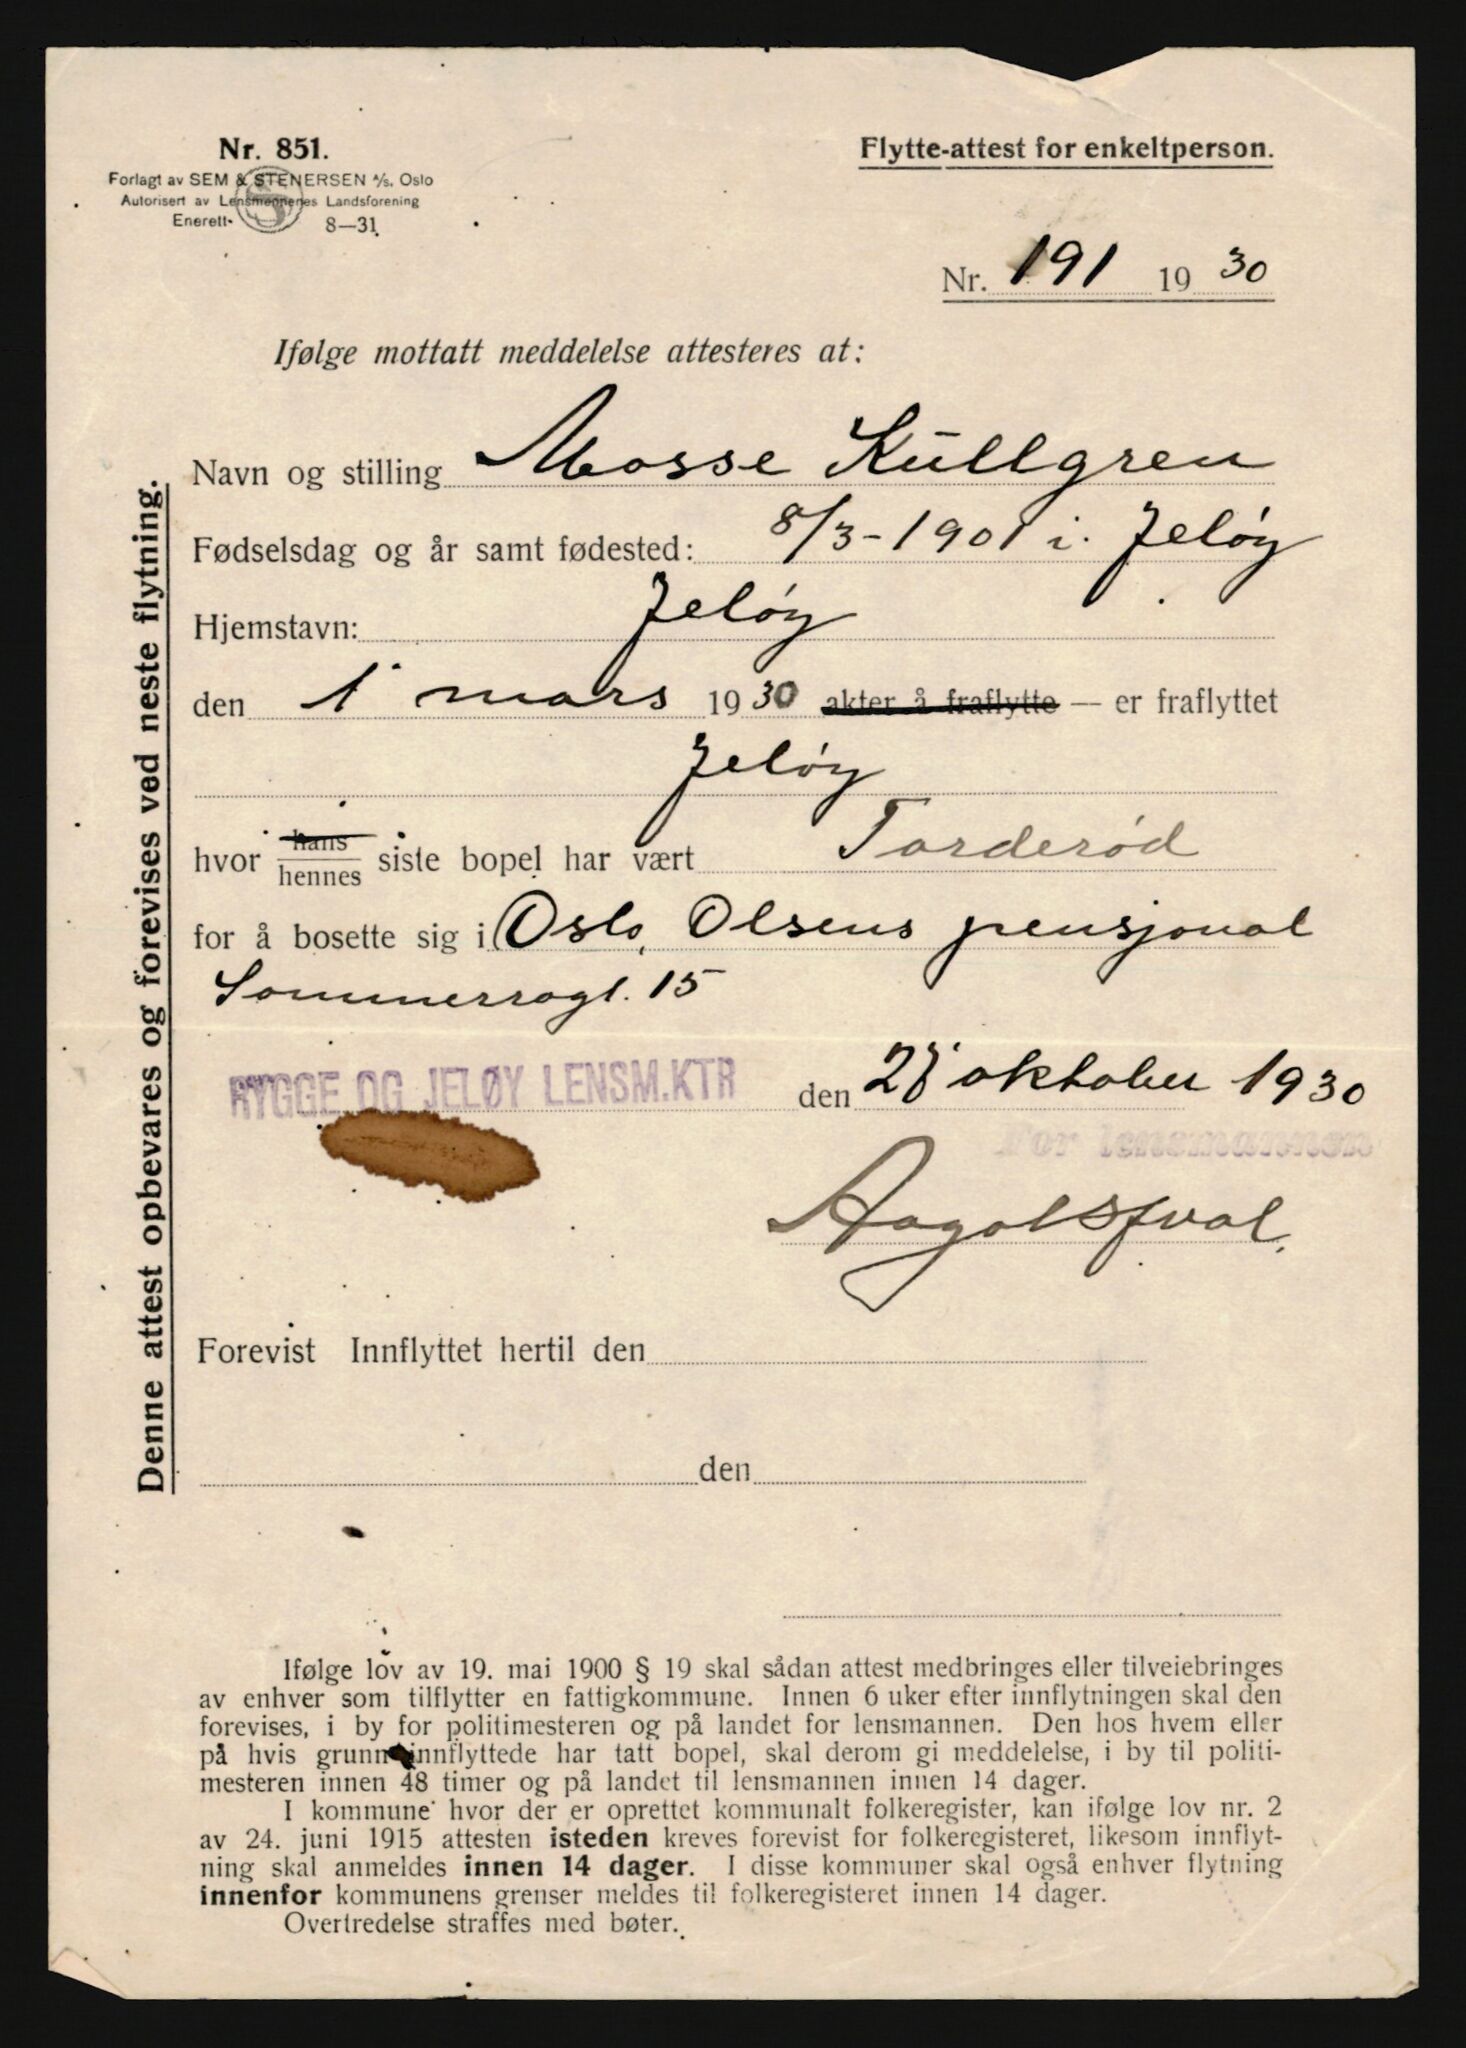 Nr. 851.
Forlagt av SEM & STENERSEN A/s. Oslo
Autorisert av Lensmennenes Landsforening
Enerett 8—31
Flytte-attest for enkeltperson.
Nr. 191 1930
Ifølge mottatt meddelelse attesteres at:
Navn og stilling Mosse Küllgren
Fødselsdag og år samt fødested: 8/3-1901 i. Jeløy
Hjemstavn: Jeløy
den 1 mars 1930 akter å fraflytte — er fraflyttet
Jeløy
hvor hans/hennes siste bopel har vært Torderød
for å bosette sig i Oslo, Olsens pensjonal
Sommerrogt. 15
RYGGE OG JELØY LENSM.KTR den oktober 1930
For lensmannen
Forevist Innflyttet hertil den
den
Denne attest opbevares og forevises ved neste flytning.
Ifølge lov av 19. mai 1900 § 19 skal sådan attest medbringes eller tilveiebringes
av enhver som tilflytter en fattigkommune. Innen 6 uker efter innflytningen skal den
forevises, i by for politimesteren og på landet for lensmannen. Den hos hvem eller
på hvis grunn innflyttede har tatt bopel, skal derom gi meddelelse, i by til politi-
mesteren innen 48 timer og på landet til lensmannen innen 14 dager.
I kommune hvor der er oprettet kommunalt folkeregister, kan ifølge lov nr. 2
av 24. juni 1915 attesten isteden kreves forevist for folkeregisteret, likesom innflyt-
ning skal anmeldes innen 14 dager. I disse kommuner skal også enhver flytning
innenfor kommunens grenser meldes til folkeregisteret innen 14 dager.
Overtredelse straffes med bøter.